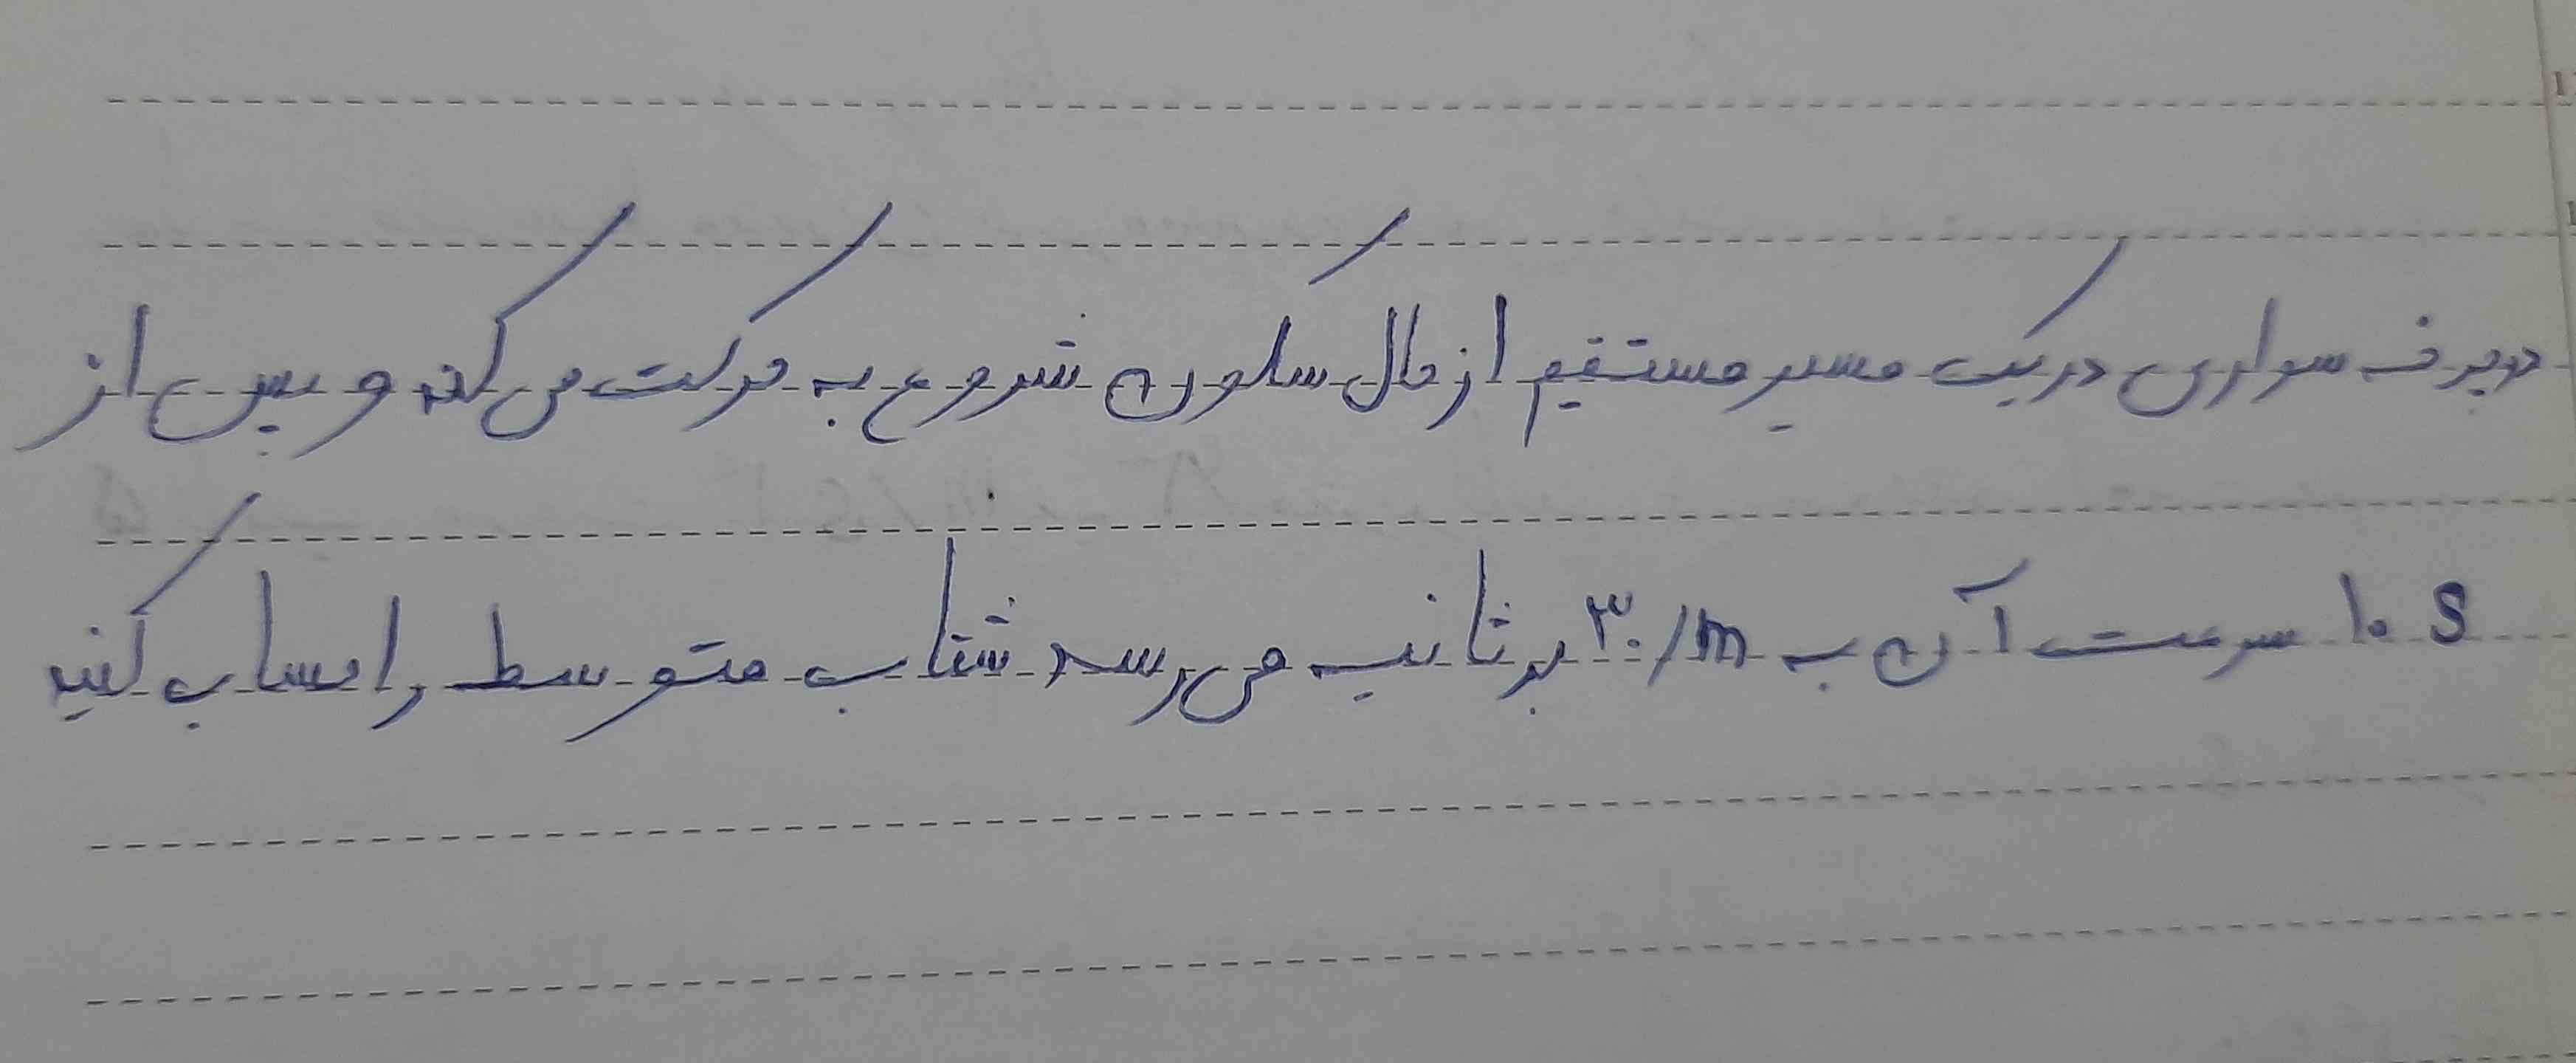 دوچرخه سواری در یک مسیر مستقیم از حال سکون شروع به حرکت می کند و پس از
۱۰ s سرعت آن به ۳۰/m بر ثانیه می رسد شتاب متوسط را حساب کنید